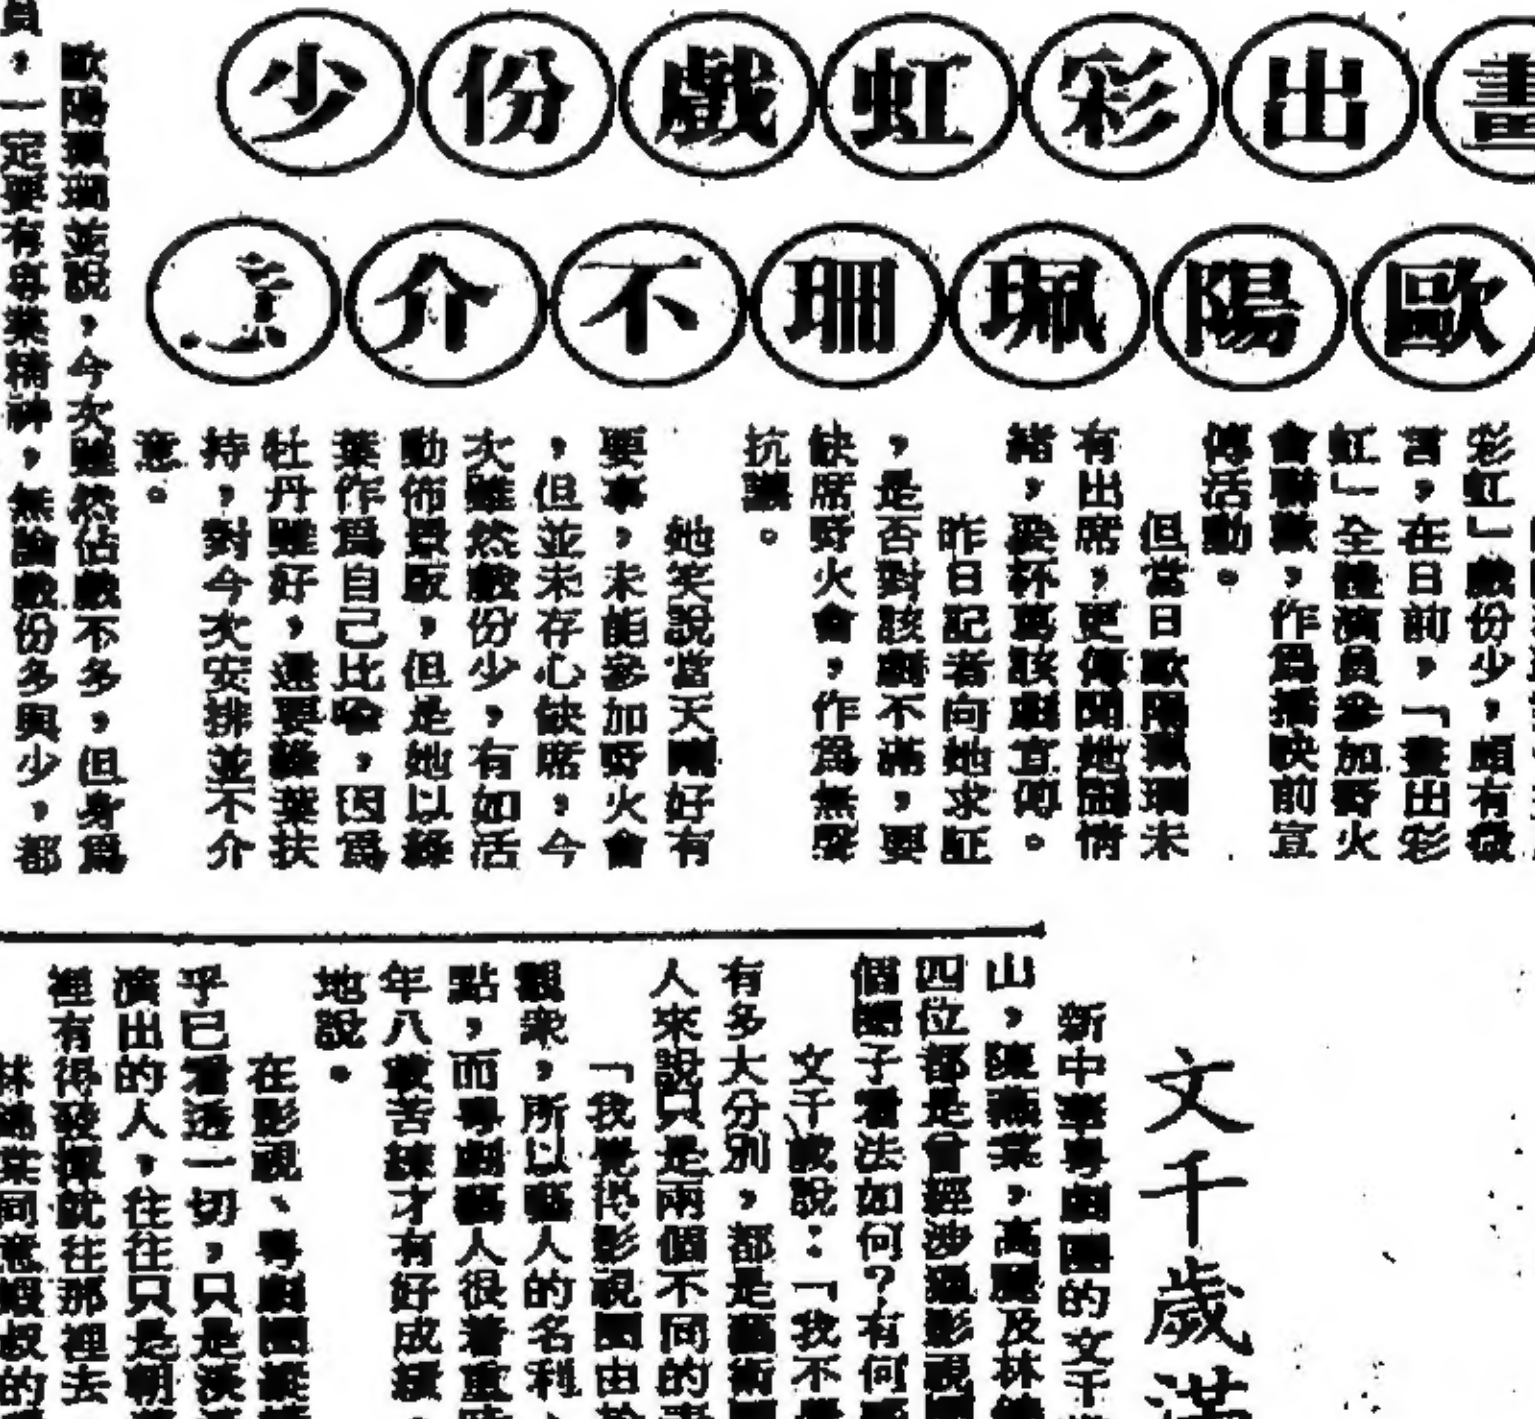 畫出彩虹戲份少
歐陽珮珊不介意
彩虹」戲份少，頗有微
言，在日前，「畫出彩
虹」全體演員參加野火
會聯歡，作爲播映前宣
傳活動。
但當日歐陽珮珊未
有出席，更傳聞她鬧情
緒，要杯葛該劇宣傳。
昨日記者向她求証
，是否對該劇不滿，要
缺席野火會，作爲無聲
抗議。
她笑說當天剛好有
要事，未能參加野火會
，但並未存心缺席。今
次雖然戲份少，有如活
動佈景版，但是她以綠
葉作爲自己比喻，因爲
牡丹雖好，還要綠葉扶
持，對今次安排並不介
意。
歐陽珮珊並說，今次雖然佔戲不多，但身爲
員，一定要有專業精神，無論戲份多與少，都
文千歲滿
新中華粵劇團的文千
山，陳燕棠，高麗及林錦
四位都是曾經涉獵影視
個圈子看法如何？有何
文千歲說：「我不
有多大分別，都是藝術
人來說只是兩個不同的
「我覺得影視圈由於
觀衆，所以藝人的名利
點，而粵劇藝人很着重
年八載苦練才有好成績
地說。
在影視、粵劇圈
乎已看透一切，只是淡
演出的人，往往只是朝
裡有得發揮就往那裡去
林錦棠同意蝦叔的